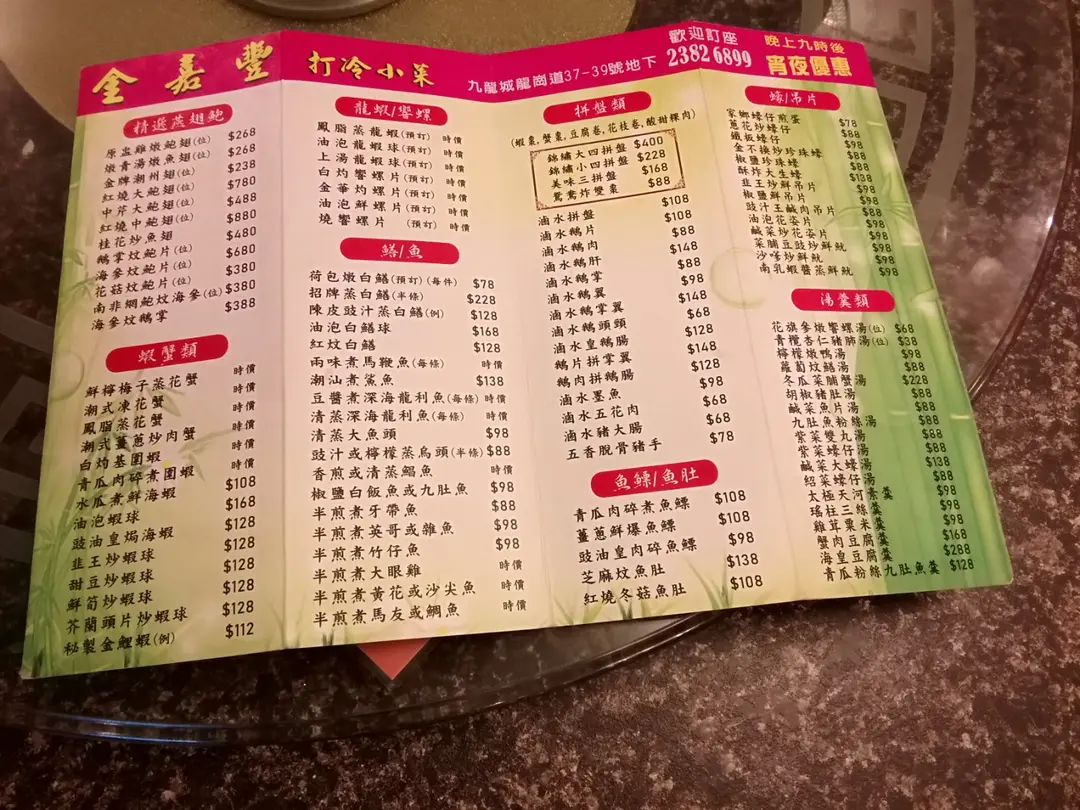 金嘉豐
打冷小菜
九龍城龍崗道37-39號地下
歡迎訂座
23826899
晚上九時後
宵夜優惠
精選燕翅鮑
原盅雞燉鮑翅(位) $268
燉青湯燉魚翅(位) $268
金牌潮州翅(位) $238
紅燒大鮑翅(位) $780
中芹大鮑翅(位) $488
紅燒中鮑翅(位) $880
桂花炒魚翅 $480
鵝掌炆鮑片(位) $680
海參炆鮑片(位) $380
花菇炆鮑片(位)
南非網鮑炆海參(位) $380
海參炆鵝掌 $388
蝦蟹類
鮮檸梅子蒸花蟹 時價
潮式凍花蟹 時價
鳳脂蒸花蟹 時價
潮式薑蔥炒肉蟹 時價
白灼基圍蝦 時價
青瓜肉碎煮圍蝦 時價
水瓜煮鮮海蝦 $108
油泡蝦球 $168
豉油皇焗海蝦 $128
韭王炒蝦球 $128
甜豆炒蝦球 $128
鮮筍炒蝦球 $128
芥蘭頭片炒蝦球 $128
秘製金鯉蝦(例) $112
龍蝦/響螺
鳳脂蒸龍蝦(預訂) 時價
油泡龍蝦球(預訂) 時價
上湯龍蝦球(預訂) 時價
白灼響螺片(預訂) 時價
金華灼螺片(預訂) 時價
油泡鮮螺片(預訂) 時價
燒響螺片(預訂) 時價
鱔/魚
荷包燉白鱔(預訂)(每件) $78
招牌蒸白鱔(半條) $228
陳皮豉汁蒸白鱔(例) $128
油泡白鱔球 $168
紅炆白鱔 $128
兩味煮馬鞭魚(每條) 時價
潮汕煮鯊魚 $138
豆醬煮深海龍利魚(每條) 時價
清蒸深海龍利魚(每條) 時價
清蒸大魚頭 $98
豉汁或檸檬蒸烏頭(半條) $88
香煎或清蒸鯧魚 時價
椒鹽白飯魚或九肚魚 $98
半煎煮牙帶魚 $88
半煎煮英哥或雜魚 $98
半煎煮竹仔魚 $98
半煎煮大眼雞 時價
半煎煮黃花或沙尖魚 時價
半煎煮馬友或鯛魚 時價
拼盤類
(蝦棗,蟹棗,豆腐卷,花枝卷,酸甜粿肉)
錦繡大四拼盤 $400
錦繡小四拼盤 $228
美味三拼盤 $168
鴛鴦炸雙棗 $88
滷水拼盤 $108
滷水鵝片 $108
滷水鵝肉 $88
滷水鵝肝 $148
滷水鵝掌 $88
滷水鵝翼 $98
滷水鵝掌翼 $148
滷水鵝頭頸 $68
滷水皇鵝腸 $128
鵝片拼掌翼 $148
鵝肉拼鵝腸 $128
滷水墨魚 $98
滷水五花肉 $68
滷水豬大腸 $68
五香脫骨豬手 $78
魚鰾/魚肚
青瓜肉碎煮魚鰾 $108
薑蔥鮮爆魚鰾 $108
豉油皇肉碎魚鰾 $98
芝麻炆魚肚 $138
紅燒冬菇魚肚 $108
蠔/吊片
家鄉蠔仔煎蛋 $78
蔥花炒蠔仔 $88
鐵板蠔仔 $98
金不換炒珍珠蠔 $88
椒鹽珍珠蠔 $88
酥炸大生蠔 $138
韭王炒鮮吊片 $98
椒鹽鮮吊片 $98
豉汁王鹹肉吊片 $88
油泡花姿片 $98
鹹菜炒花姿片 $98
菜脯豆豉炒鮮魷 $98
沙嗲炒鮮魷 $98
南乳蝦醬蒸鮮魷 $98
湯羹類
花旗參燉響螺湯(位) $68
青欖杏仁豬肺湯(位) $38
檸檬燉鴨湯 $98
蘿蔔炆鱔湯 $88
冬瓜菜脯蟹湯 $228
胡椒豬肚湯 $88
鹹菜魚片湯 $88
九肚魚粉絲湯 $88
紫菜雙九湯 $68
紫菜蠔仔湯 $88
鹹菜大蠔湯 $138
紹菜蠔仔湯 $88
太極天河素羹 $98
瑤柱三絲羹 $98
雞茸粟米羹 $98
蟹肉豆腐羹 $168
海皇豆腐羹 $288
青瓜粉絲九肚魚羹 $128